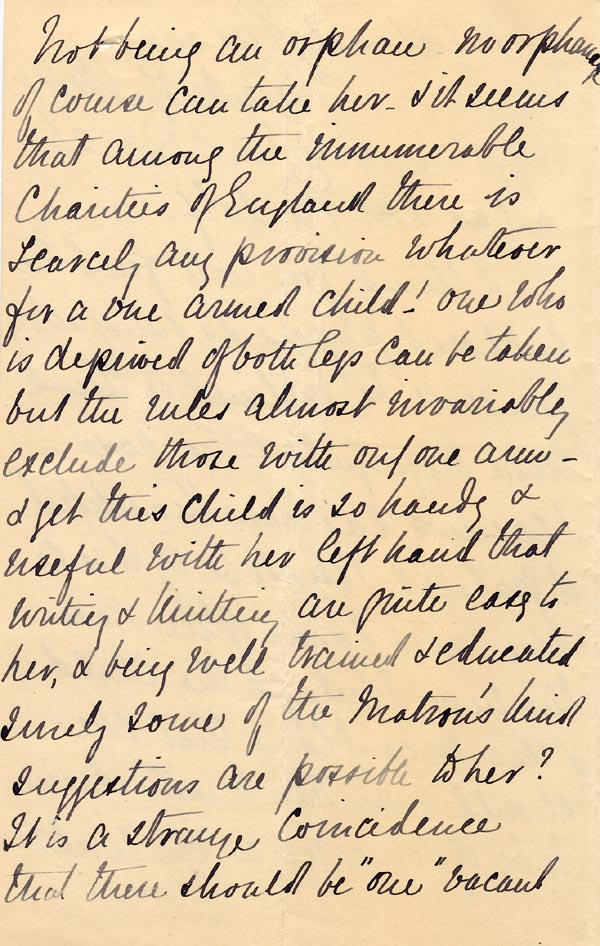 Not being an orphan no orphanage
of course can take her - & it seems
that among the innumerable
Charities of England there is
scarcely any provision whatever
for a one armed child! one who
is deprived of both legs can be taken
but the rules almost invariably
exclude those with only one arm -
& yet this child is so handy &
useful with her left hand that
writing & knitting are quite easy to
her, & being well trained & educated
surely some of the Matron's kind
suggestions are possible to her?
It is a strange coincidence
that there should be "one" vacant